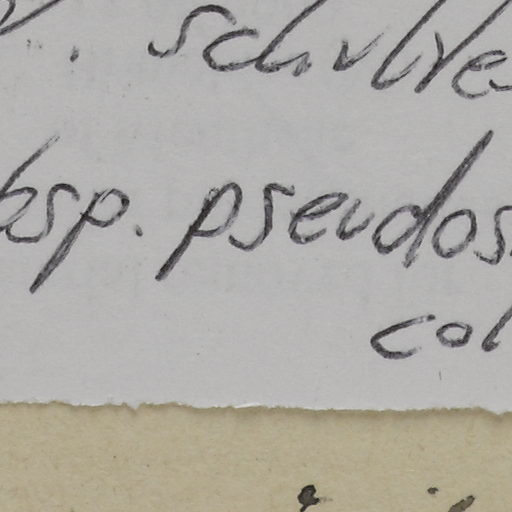 schulte
bsp. pseudos
col